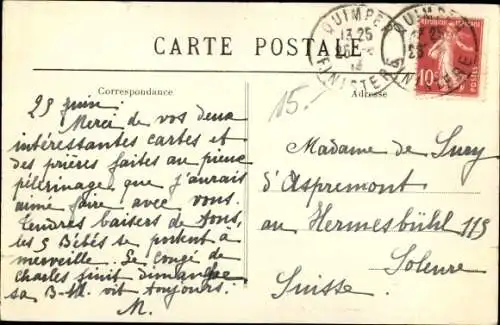 CARTE POSTALE
QUIMPER
13 25
FINISTERE
QUIMPER
FINISTERE
10
Correspondance
Adresse
15.
25 juin.
Merci de vos deux
intéressantes cartes et
des prières faites au pieux
pèlerinage que j'aurais
aimé faire avec vous.
Tendres baisers de tous,
les 5 Bébés se portent à
merveille. Le congé de
Charles finit dimanche
sa B-M. vit toujours.
M.
Madame de Sury
d'Aspremont
au Hermesbühl 119
Soleure
Suisse.